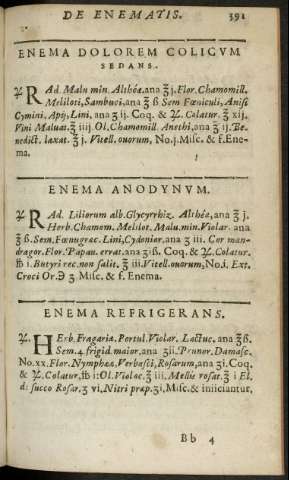 DE ENEMATIS. 391
ENEMA DOLOREM COLICVM
SEDANS.
℞ RAd. Malu min. Altheæ, ana ℥ j. Flor. Chamomill.
Meliloti, Sambuci, ana ℥ ß Sem Fœniculi, Anisi
Cymini, Apij, Lini, ana ʒ ij. Coq. & ℞. Colatur. ℥ xij.
Vini Maluat. ℥ iiij. Ol. Chamomill. Anethi, ana ℥ ij. Be-
nedict. laxat. ℥ j. Vitell. ouorum, No. j. Misc. & f. Ene-
ma.
ENEMA ANODYNVM.
℞ RAd. Liliorum alb. Glycyrrhiz. Altheæ, ana ℥ j.
Herb. Chamom. Melilot. Malu. min. Violar. ana
℥ ß. Sem. Fœnugræc. Lini, Cydonior. ana ʒ iii. Cor man-
dragor. Flor. Papau. errat. ana ʒ iß. Coq. & ℞. Colatur.
℔ i. Butyri rec. non salit. ℥ iii. Vitell. ouorum, No. i. Ext.
Croci Or. ℈ ʒ. Misc. & f. Enema.
ENEMA REFRIGERANS.
℞. HErb. Fragariæ. Portul. Violar. Lactuc. ana ℥ ß.
Sem. 4 frigid. maior. ana ʒii. Prunor. Damasc.
No. xx. Flor. Nympheæ, Verbasci, Rosarum, ana ʒi. Coq.
& ℞. Colatur. ℔ i: Ol. Violac. ℥ iii. Mellis rosat. ℥ i El.
d: succo Rosar. ʒ vi, Nitri præp. ʒi, Misc. & iniiciantur,
Bb 4